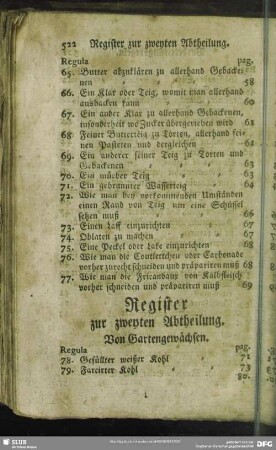 522 Register zur zweyten Abtheilung.
Regula pag.
65. Butter abzuklären zu allerhand Gebacke-
nen 58
66. Ein Klar oder Teig, womit man allerhand
ausbacken kann 60
67. Ein ander Klar zu allerhand Gebackenen,
insonderheit wo Zucker übergetrieben wird 61
68. Feiner Butterteig zu Torten, allerhand fei-
nen Pasteten und dergleichen 61
69. Ein anderer feiner Teig zu Torten und
Gebackenen 63
70. Ein mürber Teig 63
71. Ein gebrannter Wasserteig 64
72. Wie man bey vorkommenden Umständen
einen Rand von Teig um eine Schüssel
setzen muß 66
73. Einen Laff einzurichten 67
74. Oblaten zu machen 67
75. Eine Peckel oder Lake einzurichten 68
76. Wie man die Coutlettchen oder Carbonade
vorher zurecht schneiden und präpariren muß 68
77. Wie man die Fricandaux von Kalbfleisch
vorher schneiden und präpariren muß 69
Register
zur zweyten Abtheilung.
Von Gartengewächsen.
Regula pag.
78. Gefüllter weißer Kohl 71
79. Farcirter Kohl 73
80.
SLUB